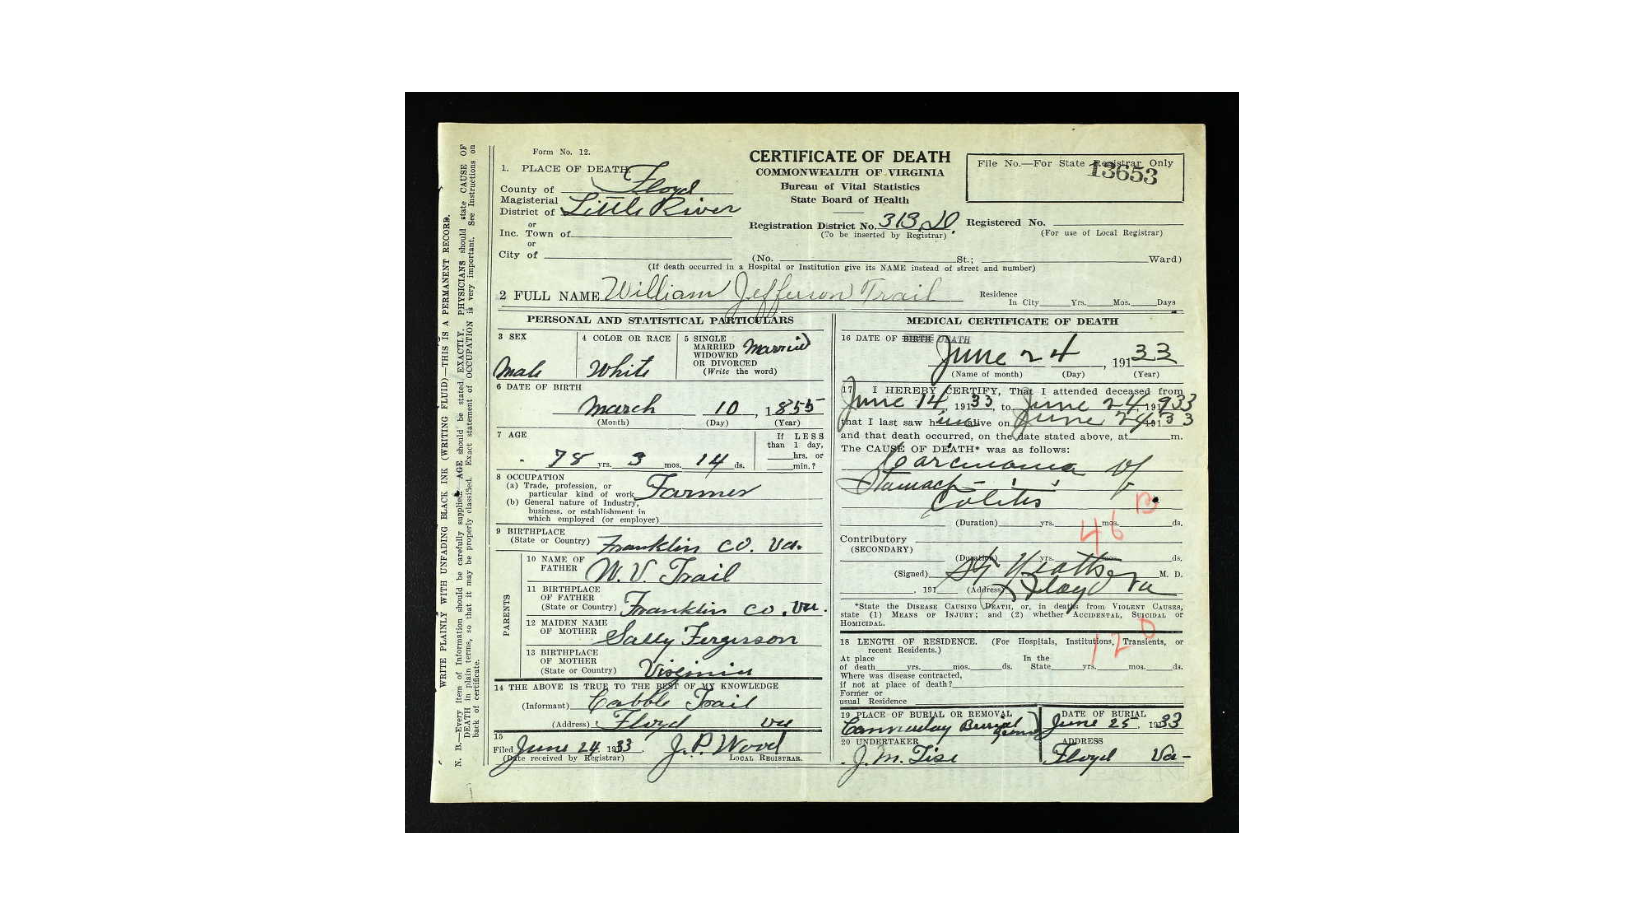 Form No. 12.
CERTIFICATE OF DEATH
COMMONWEALTH OF VIRGINIA
Bureau of Vital Statistics
State Board of Health
File No.—For State Registrar Only
13653
1. PLACE OF DEATH
County of Floyd
Magisterial
District of Little River
or
Inc. Town of
or
City of
Registration District No. 313 D. Registered No.
(To be inserted by Registrar) (For use of Local Registrar)
(No. St.; Ward)
(If death occurred in a Hospital or Institution give its NAME instead of street and number)
2 FULL NAME William Jefferson Trail
Residence
In City Yrs. Mos. Days
PERSONAL AND STATISTICAL PARTICULARS
3 SEX
Male
4 COLOR OR RACE
White
5 SINGLE
MARRIED
WIDOWED
OR DIVORCED
(Write the word)
Married
6 DATE OF BIRTH
March 10, 1855
(Month) (Day) (Year)
7 AGE
78 yrs. 3 mos. 14 ds.
If LESS
than 1 day,
hrs. or
min.?
8 OCCUPATION
(a) Trade, profession, or
particular kind of work Farmer
(b) General nature of Industry,
business, or establishment in
which employed (or employer)
9 BIRTHPLACE
(State or Country) Franklin Co. Va.
PARENTS
10 NAME OF
FATHER W. V. Trail
11 BIRTHPLACE
OF FATHER
(State or Country) Franklin Co. Va.
12 MAIDEN NAME
OF MOTHER Sally Fergusson
13 BIRTHPLACE
OF MOTHER
(State or Country) Virginia
14 THE ABOVE IS TRUE TO THE BEST OF MY KNOWLEDGE
(Informant) Trail
(Address) Floyd Va
15
Filed June 24, 1933 J. P. Wood
(Date received by Registrar) LOCAL REGISTRAR.
MEDICAL CERTIFICATE OF DEATH
16 DATE OF BIRTH DEATH
June 24, 1933
(Name of month) (Day) (Year)
17 I HEREBY CERTIFY, That I attended deceased from
June 14, 1933, to June 24, 1933
that I last saw him alive on June 24, 1933
and that death occurred, on the date stated above, at m.
The CAUSE OF DEATH* was as follows:
Carcinoma of
Stomach
Colitis
(Duration) yrs. mos. ds.
46 B
Contributory
(SECONDARY)
(Duration) yrs. mos. ds.
(Signed) M. D.
, 191 (Address) Floyd Va
*State the DISEASE CAUSING DEATH, or, in deaths from VIOLENT CAUSES,
state (1) MEANS OF INJURY; and (2) whether ACCIDENTAL, SUICIDAL or
HOMICIDAL.
18 LENGTH OF RESIDENCE. (For Hospitals, Institutions, Transients, or
recent Residents.)
At place
of death yrs. mos. ds.
In the
State yrs. mos. ds.
Where was disease contracted,
if not at place of death?
Former or
usual Residence
19 PLACE OF BURIAL OR REMOVAL
Burial
DATE OF BURIAL
June 25, 1933
20 UNDERTAKER
J. M.
ADDRESS
Floyd Va-
WRITE PLAINLY WITH UNFADING BLACK INK (WRITING FLUID)—THIS IS A PERMANENT RECORD.
N. B.—Every item of Information should be carefully supplied. AGE should be stated EXACTLY. PHYSICIANS should state CAUSE OF
DEATH in plain terms, so that it may be properly classified. Exact statement of OCCUPATION is very important. See Instructions on
back of certificate.